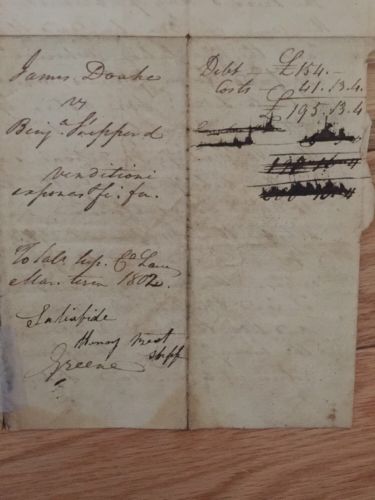 James Doake
vs
Benj.ª Sheppard
venditioni
exponas & fi. fa.
To Talb. Sup. Ct Law
Mar. term 1802.
Satisfide
Henry
Shff
Greene
Debt — £154.—
Costs — 41.13.4.
£195.13.4